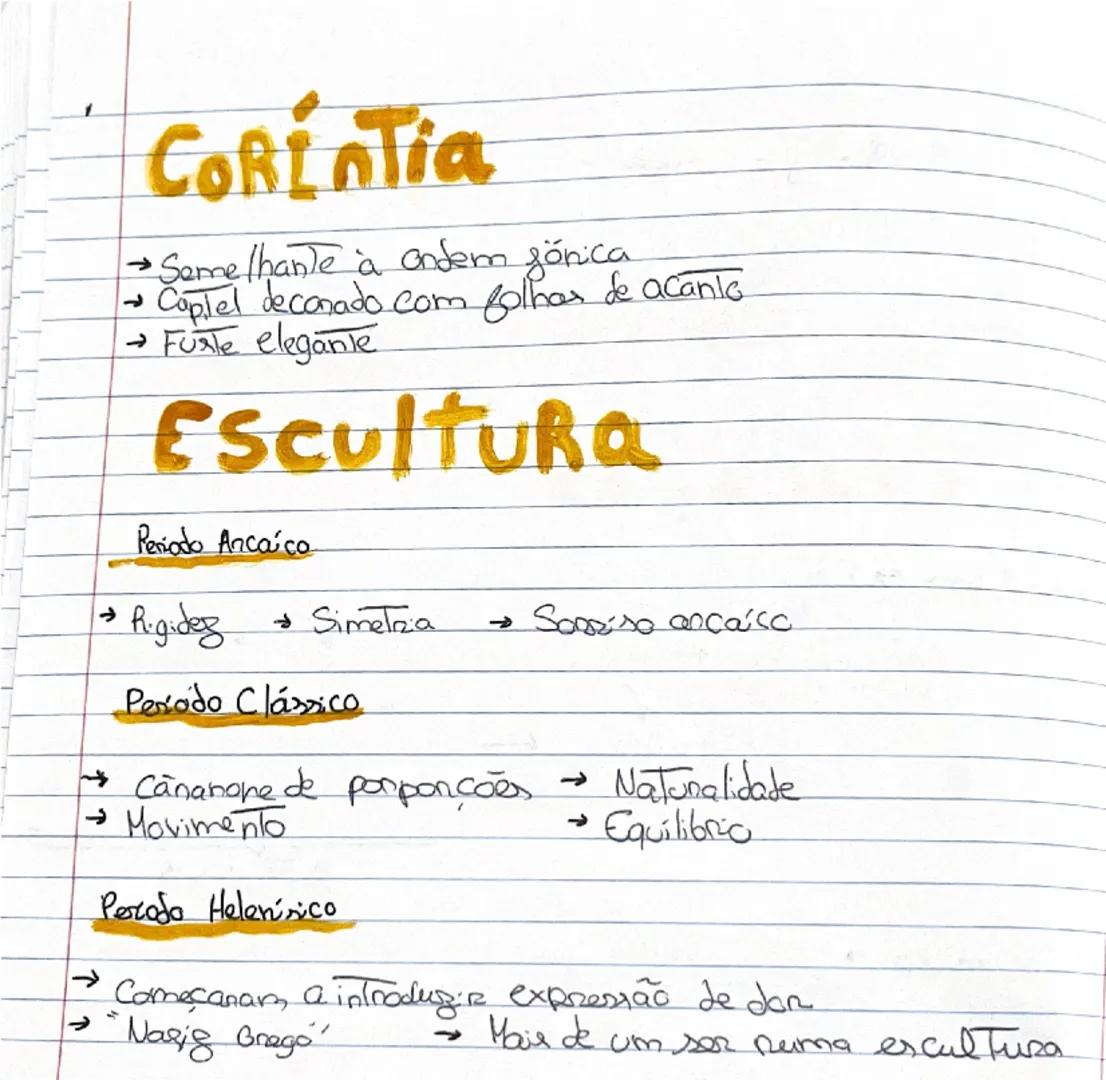 CORÍnTia
→ Semelhante à ordem jónica
→ Captel decorado com folhas de acanto
→ Fuste elegante
ESCULTURA
Periodo Arcaíco
→ Rigidez → Simetria → Sorriso arcaíco
Período Clássico
→ de porporções → Naturalidade
→ Movimento → Equilibrio
Período Helenísico
→ Começaram a introduzir expressão de dor
→ "Nariz Grego" → Mais de um ser numa escultura